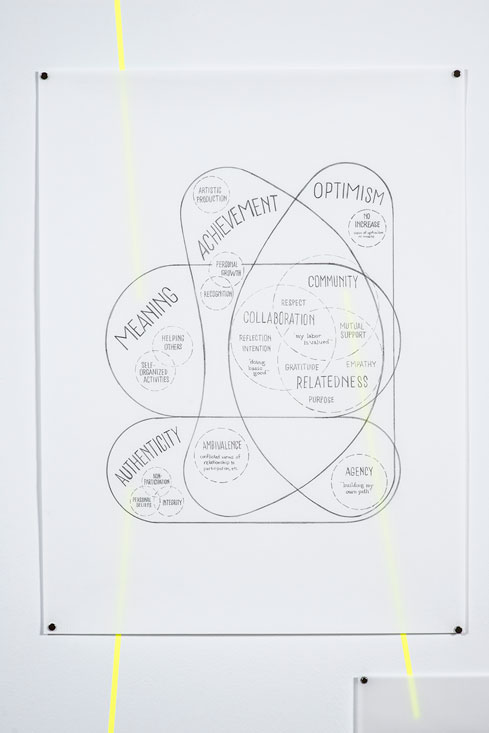 ARTISTIC
PRODUCTION
ACHIEVEMENT
OPTIMISM
NO
INCREASE
PERSONAL
GROWTH
RECOGNITION
COMMUNITY
RESPECT
COLLABORATION
"my labor
is valued"
MUTUAL
SUPPORT
REFLECTION
INTENTION
"doing
good"
GRATITUDE
EMPATHY
RELATEDNESS
PURPOSE
MEANING
HELPING
OTHERS
SELF-
ORGANIZED
ACTIVITIES
AUTHENTICITY
NON-
PARTICIPATION
PERSONAL
BELIEFS
INTEGRITY
AMBIVALENCE
conflicted views of
relationship to
AGENCY
"building my
own path"